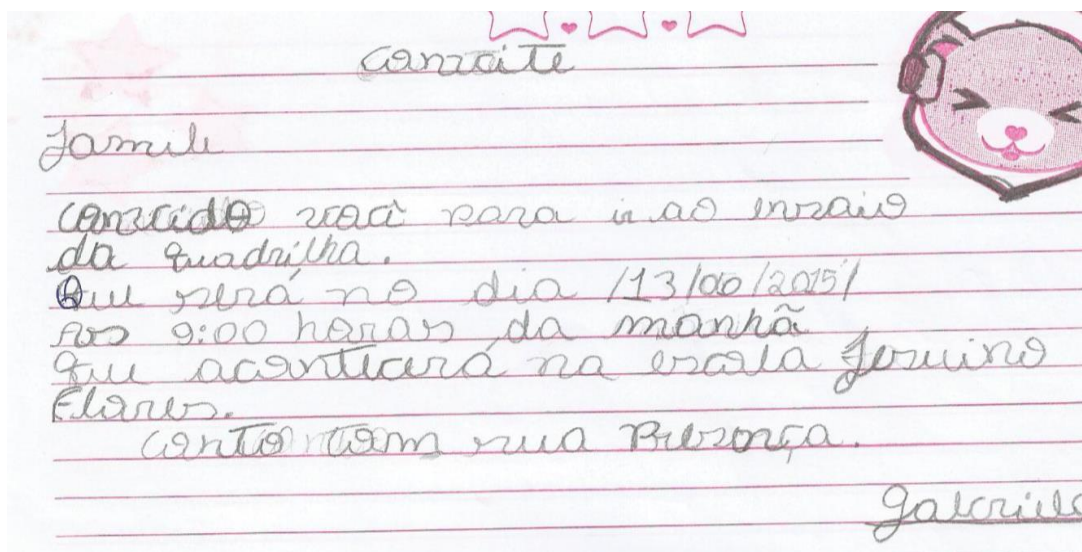 Convite
Jamile
Convido você para ir ao ensaio
da quadrilha.
Que será no dia /13/06/2015/
As 9:00 horas da manhã
que acontecerá na escola Jesuino
Flores.
Conto com sua Presença.
Gabriele